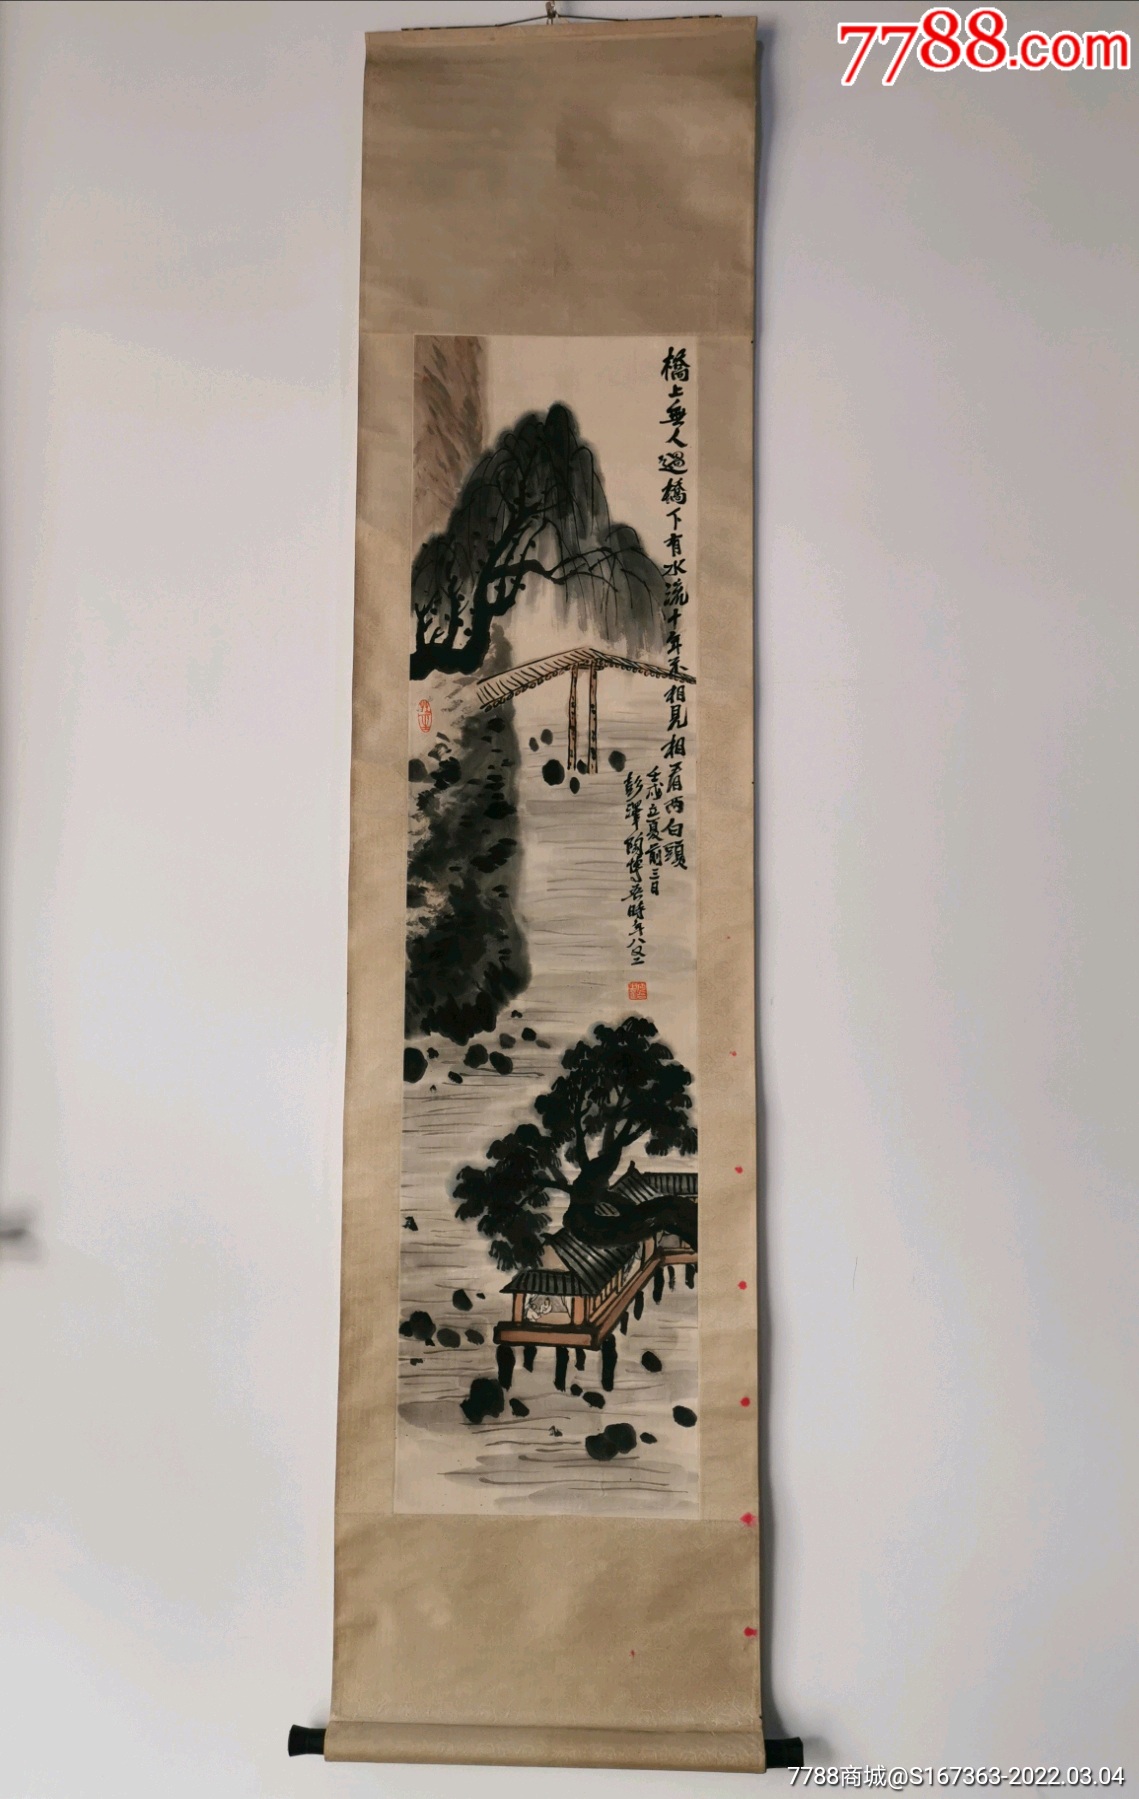 7788.com
橋上無人過橋下有水流十年不相見相看两白頭
壬戌立夏前三日
彭澤陶博吾時年八又二
7788商城@S167363-2022.03.04